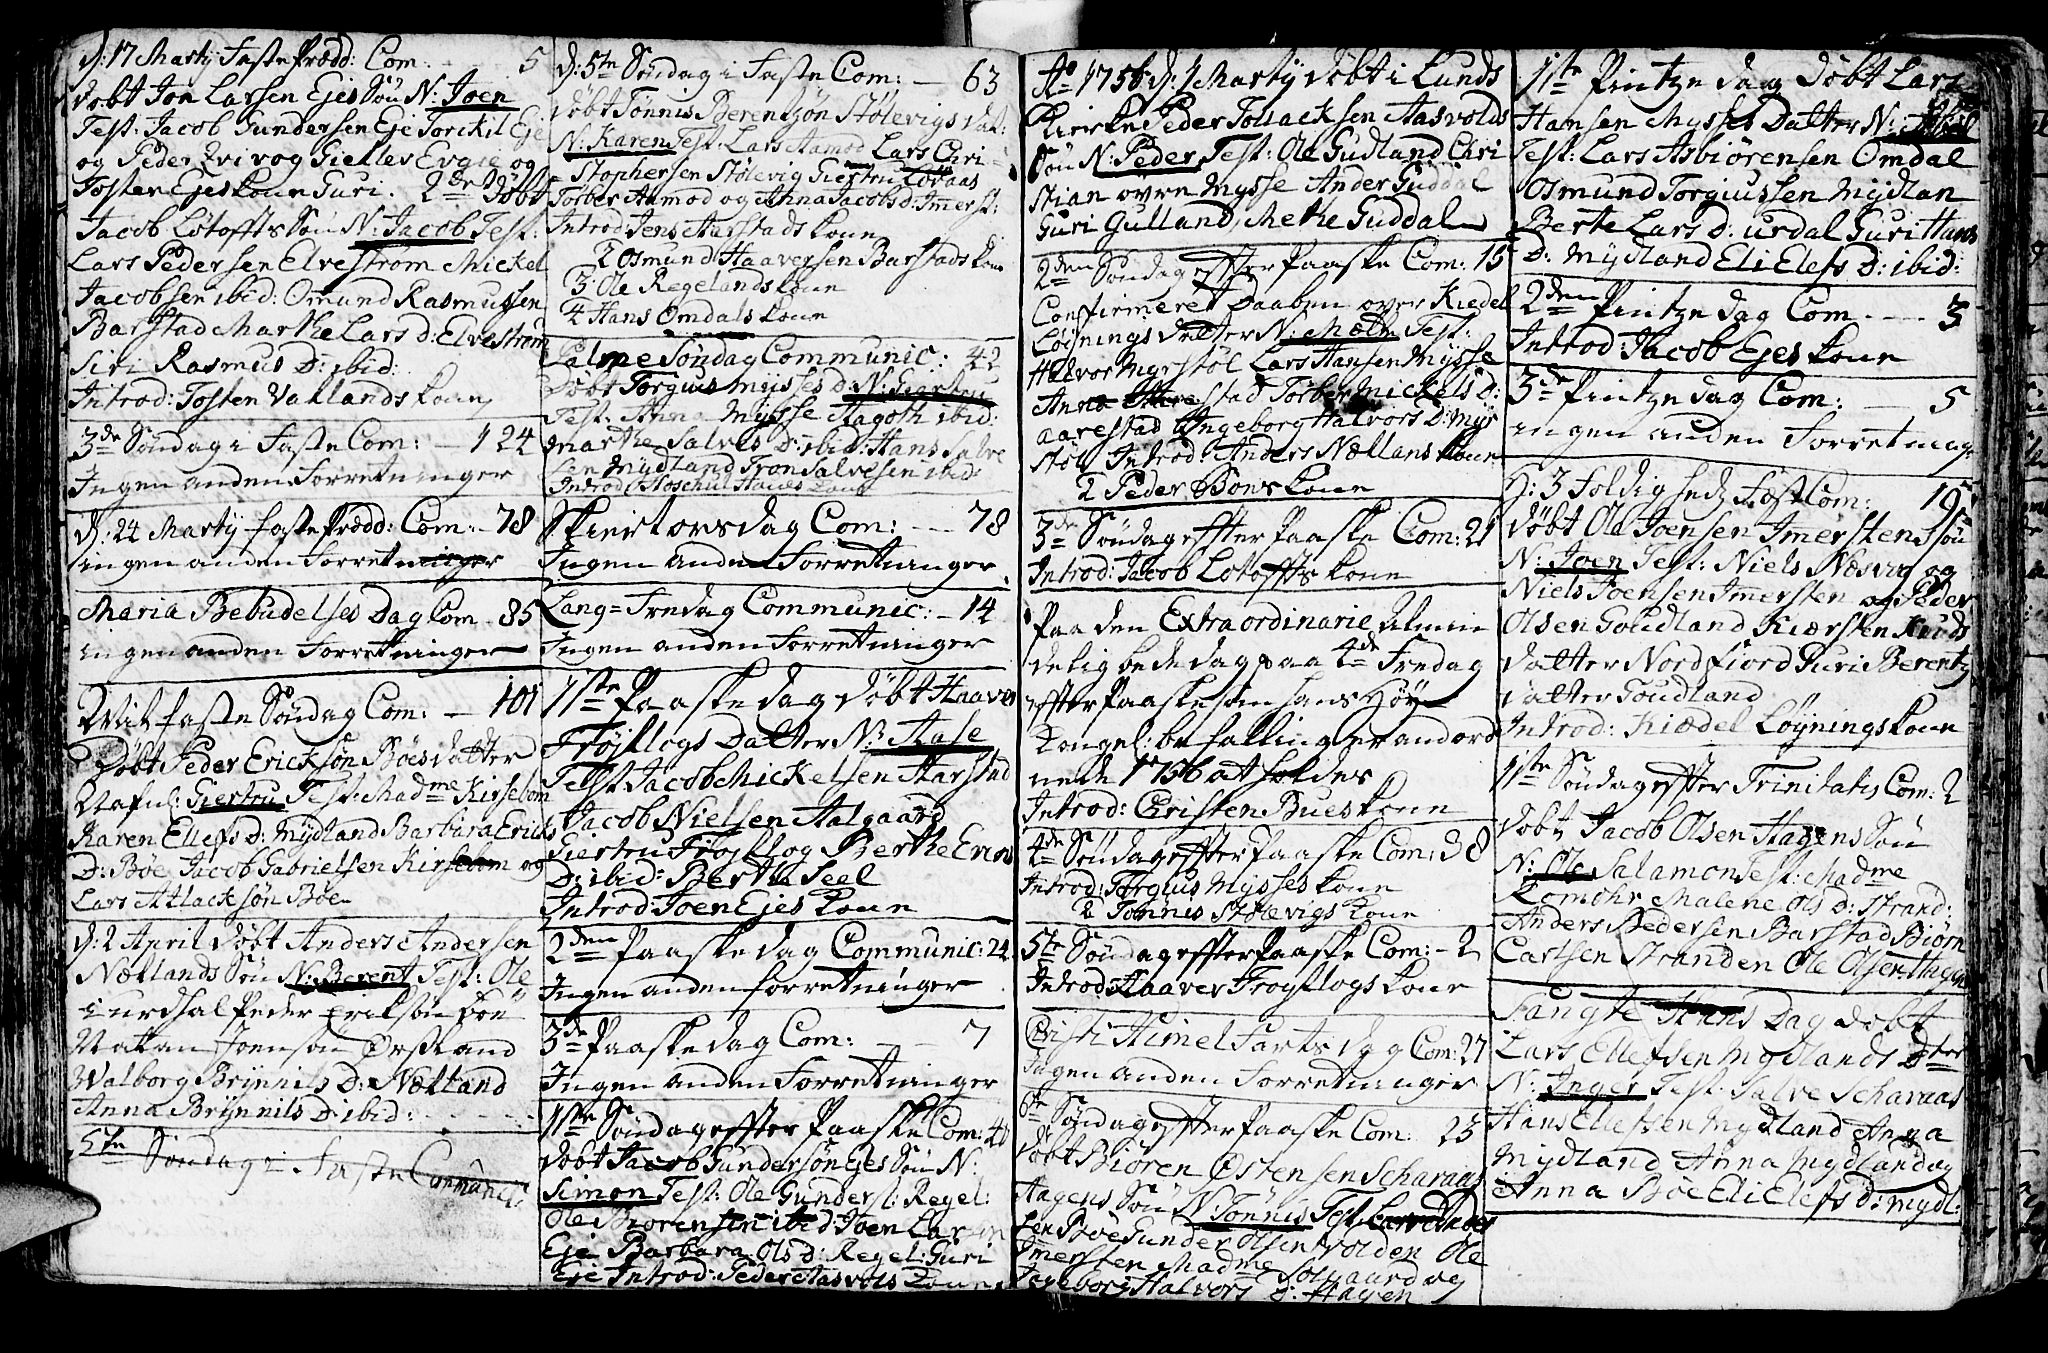 d: 17 Martÿ Faste Prædd: Com. - 5
Døbt Jon Larsen Ejes Søn N: Joen
Test: Jacob Gundersen Eje Torckil Eje
og Peder og Gielles Evgie og
Tosten Ejes kone Guri. 2de Døbt
Jacob Løtoffts Søn N: Jacob Test:
Lars Pedersen Elvestrøm Mickel
Jacobsen ibid: Omund Rasmussen
Barstad Marthe Lars d: Elvestrøm
Siri Rasmus D: ibid:
Introd: Tosten Vatlands kone
3de Søndag i Faste Com: - 124
Ingen anden Forretninger
d: 24 Martÿ faste Prædd: Com: - 78
ingen anden Forretninger
Maria Bebudelses Dag Com - 85
ingen anden Forretninger
Mit faste Søndag Com: - 101
Døbt Peder Ericksøn Böes datter
Nafnl: Giertru Test: Madme Kirsebom
Karen Ellefs D: Mÿdland Barbara Ericks
D: Böe Jacob Gabrielsen Kirsebom og
Lars Atlacksøn Böe
d: 2 April Døbt Anders Andersen
Nætlands Søn N: Berent Test: Ole
i urdhal Peder Erikson böe
Natan Joenson Ørsland
Walborg Brÿnnils D: Nætland
Anna Brÿnnils D: ibid:
5te Søndag i Faste Communic:
d: 5te Søndag i Faste Com: - 63
Døbt Tønnis Berentzøn Stølevigs dat:
N: Karen Test: Lars Aamod Lars Chri-
stophersen Stølevig Giertru
Torber Aamod og Anna Jacobs d: Imerst:
Introd Jens Aarstads kone
2 Osmund Haaversen Barstads kone
3 Ole Regelands kone
4 Hans Omdals kone
Palme Søndag Communic: 42
Døbt Torgius Mÿsses D: N:
Test: Anna Mÿsse Aagoth ibid:
Marthe Salves D: ibid: Hans Salve
sen Mÿdland Tron Salvesen ibid:
Introd
Skiertorsdag Com: - - 78
Ingen anden Forretninger
Lang=Fredag Communic: - 14
Ingen anden Forretninger
1ste Paaske dag Døbt Haaver
Frøÿtlogs Datter N: Aase
Test Jacob Mickelsen Aarstad
Jacob Nielsen Aalgaard
Giertru Frøÿtlog Berthe
D: ibid: Berthe Seel
Introd: Joen Ejes kone
2den Paaske dag Communic: 24
Ingen anden forretninger
3de Paaske dag Com: - - 7
Ingen anden Forretninger
1ste Søndag effter Paaske Com: 40
Døbt Jacob Gundersøn Ejes Søn N:
Simon Test: Ole Gunders: Regel:
Ole Biorensen ibid: Joen Larsen
Eje Barbara Ols d: Regel: Guri
Eje Introd: Peder Aasvols kone
Ao 1756 d: 1 Martÿ Døbt i Lunds
Kiercke Peder Tollacksen Aasvolds
Søn N: Peder Test: Ole Gudland Chri
stian øvre Mÿsse Ander Guddal
Guri Gulland, Mette Guddal
2den Søndag effter Paaske Com: 15
Confirmeret Daaben over Kiedel
Løÿnings datter N: Test:
Halvor Mÿrstøl Lars Hansen Mÿsse
Anna stad Torber Mickels D:
aarestad Ingeborg Halvors D: Mÿr
støl Introd: Anders Nætlans kone
2 Peder Böes kone
3de Søndag effter Paaske Com: 21
Introd: Jacob Lotoffts kone
Paa den Extraordinarie Almin
delig bededag paa 4de Fredag
effter Paaske som hans Höÿ
Kongel: befalling er anord
nede 1756 at holdes
Introd: Christen Bues kone
4de Søndag effter Paaske Com: 38
Introd: Torgius Mÿsses kone
2 Tønnis Stølevigs kone
5te Søndag effter Paaske Com: - 2
Introd: Haaver Froÿtlogs kone
Cristi Himel Farts dag Com: 27
Ingen anden Forretninger
6te Søndag effter Paaske Com: 23
Døbt Biören Østensen Scharaas
Hagens Søn N: Tønnis Test:
sen Böe Gunder Olsen volden Ole
Imersten Madme Solgaard og
Ingeborg Halvors D: Hagen
1ste Pintze dag Døbt Lars
Hansen Mÿsses Datter N:
Test: Lars Asbiörensen Omdal
Osmund Torgiussen Mÿdlan
Berte Lars D: urdal Guri Hans
D: Mÿdland Eli Elefs D: ibid:
2den Pintze dag Com - - - 3
Introd: Jacob Ejes kone
3de Pintze dag Com: - 5
ingen anden Forretninge
H: 3 foldigheds Fest Com: 19
Døbt Ole Joensen Imerstens søn
N: Joen Test: Niels Næsvig og
Niels Joensen Imersten og Peder
Olsen Goudland Kiersten Knuds
datter Nordfiord Guri Berentz
datter Goudland
Introd: Kiædel Løÿnings kone
1ste Søndag effter Trinitatis Com: 2
Døbt Jacob Olsen Hagens Søn
N: Ole Salamon Test: Madme
Lomohr Malene Ols D: Strand:
Anders Pedersen Barstad Biørn
Carlsen Stranden Ole Olsen Hagen
Sangte Hans Dag Døbt
Lars Ellefsen Mÿdlands Dter
N: Inger Test: Salve Scharaas
Hans Ellefsen Mÿdland Anna
Mÿdland Anna Mÿdland og
Anna Böe Eli Elefs d: mÿdl: